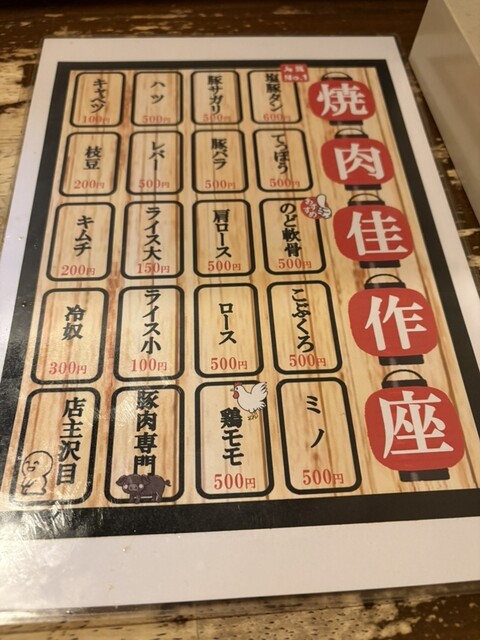 焼肉佳作座
人気No.1
塩豚タン
600円
てっぽう
500円
おすすめ
のど軟骨
500円
こぶくろ
500円
ミノ
500円
豚サガリ
500円
豚バラ
500円
肩ロース
500円
ロース
500円
鶏モモ
500円
ハツ
500円
レバー
500円
ライス大
150円
ライス小
100円
豚肉専門
キャベツ
100円
枝豆
200円
キムチ
200円
冷奴
300円
店主沢目